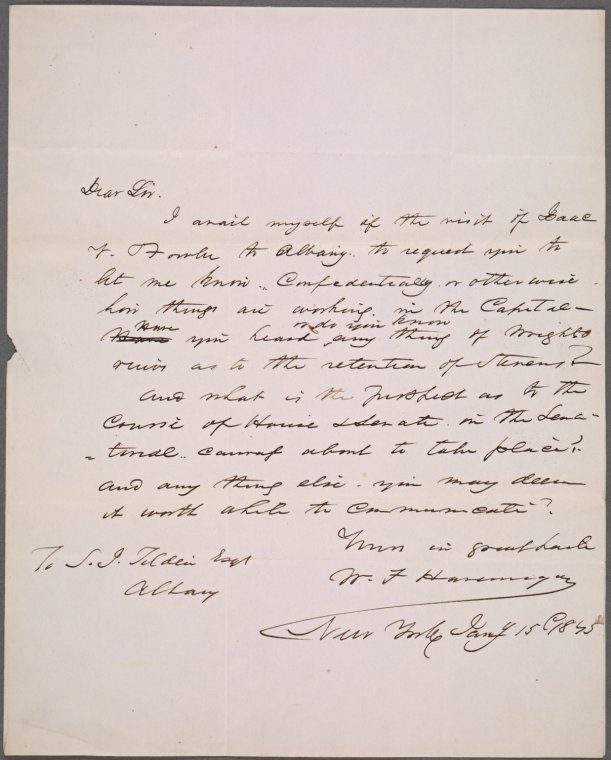 Dear Sir.
I avail myself if the visit of Isaac
V. Fowler to Albany. to request you to
let me know. Confedentially or otherwise.
how things are working. in the Capital—
Have or do you know
you heard any thing of Wright's
views as to the retention of Stevens?
and what is the Prospect as to the
Course of House & Senate. in the Sena-
-torial. caucus about to take place?.
and any thing else. you may deem
it worth while to communicate?.
Yours in great haste
W. F. Havemeyer
To S. J. Tilden Esqr
Albany
New York Jany 15 1845